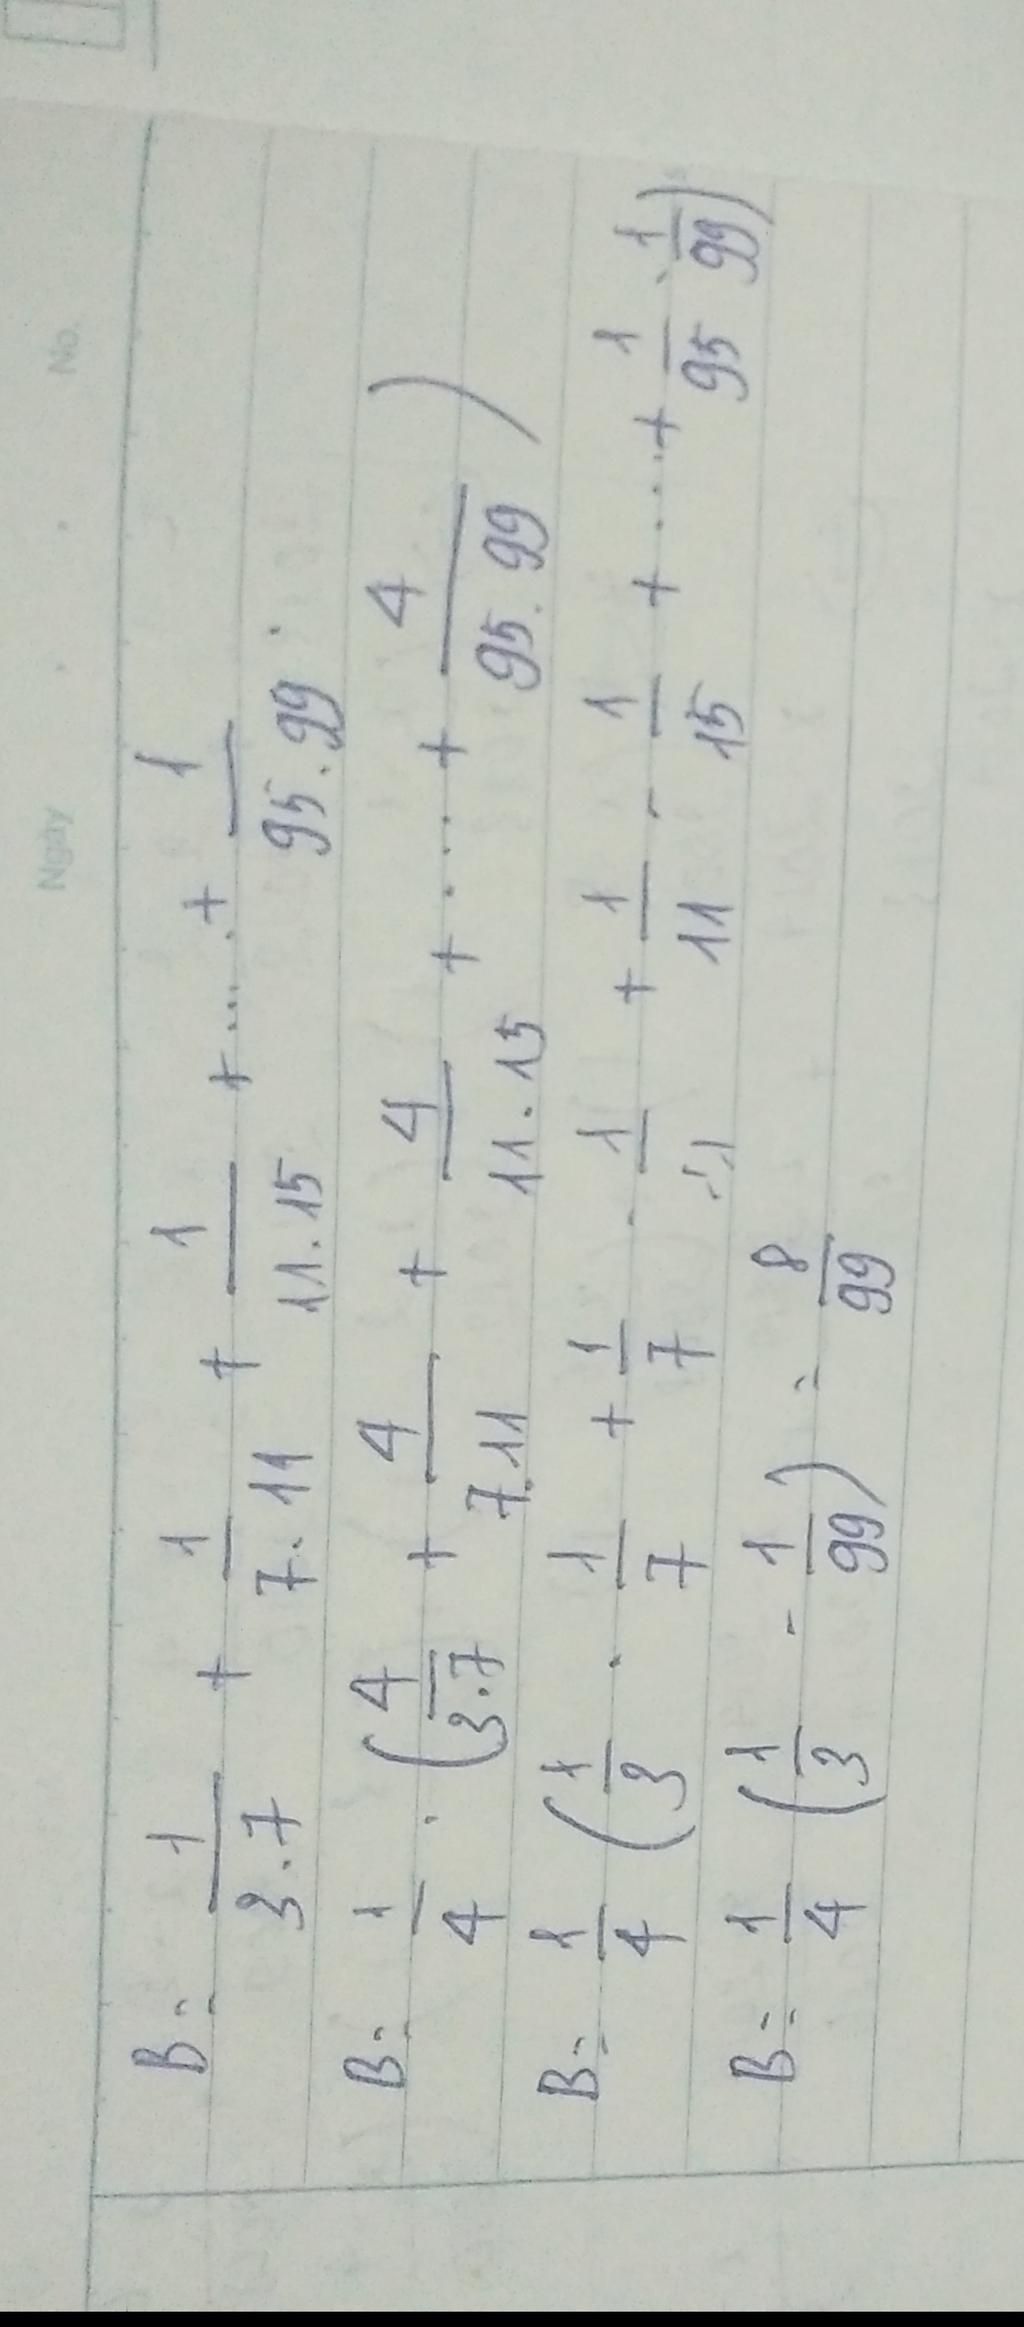 Ngày . . No.
B = 1/(3.7) + 1/(7.11) + 1/(11.15) + .... + 1/(95.99)
B = 1/4 . (4/(3.7) + 4/(7.11) + 4/(11.15) + .... + 4/(95.99))
B = 1/4 (1/3 - 1/7 + 1/7 - 1/11 + 1/11 - 1/15 + .... + 1/95 - 1/99)
B = 1/4 (1/3 - 1/99) = 8/99